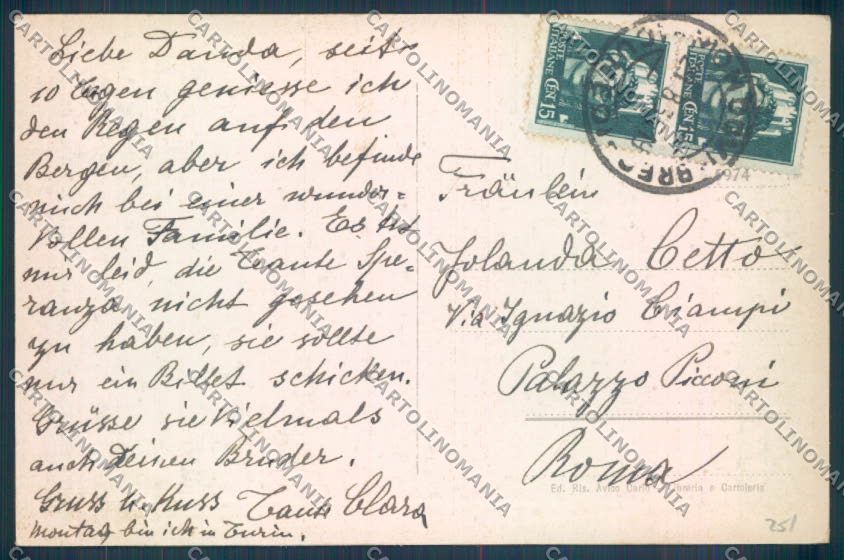 Liebe Danda, seit
10 Tagen geniesse ich
den Regen auf den
Bergen, aber ich befinde
mich bei einer wunder=
vollen Familie. Es tut
mir leid, die Tante Spe=
ranza nicht gesehen
zu haben, sie sollte
mir ein Billet schicken.
Grüsse sie Vielmals
auch Deinen Bruder.
Gruss u. Kuss Tante Clara
Montag bin ich in Turin.
POSTE ITALIANE CEN 15
POSTE ITALIANE CEN 15
1974
Fräulein
Jolanda Cetto
Via Ignazio Ciampi
Palazzo Picconi
Roma
Ed. Ris. Aviso Carlo Libreria e Cartoleria
251
CARTOLINOMANIA